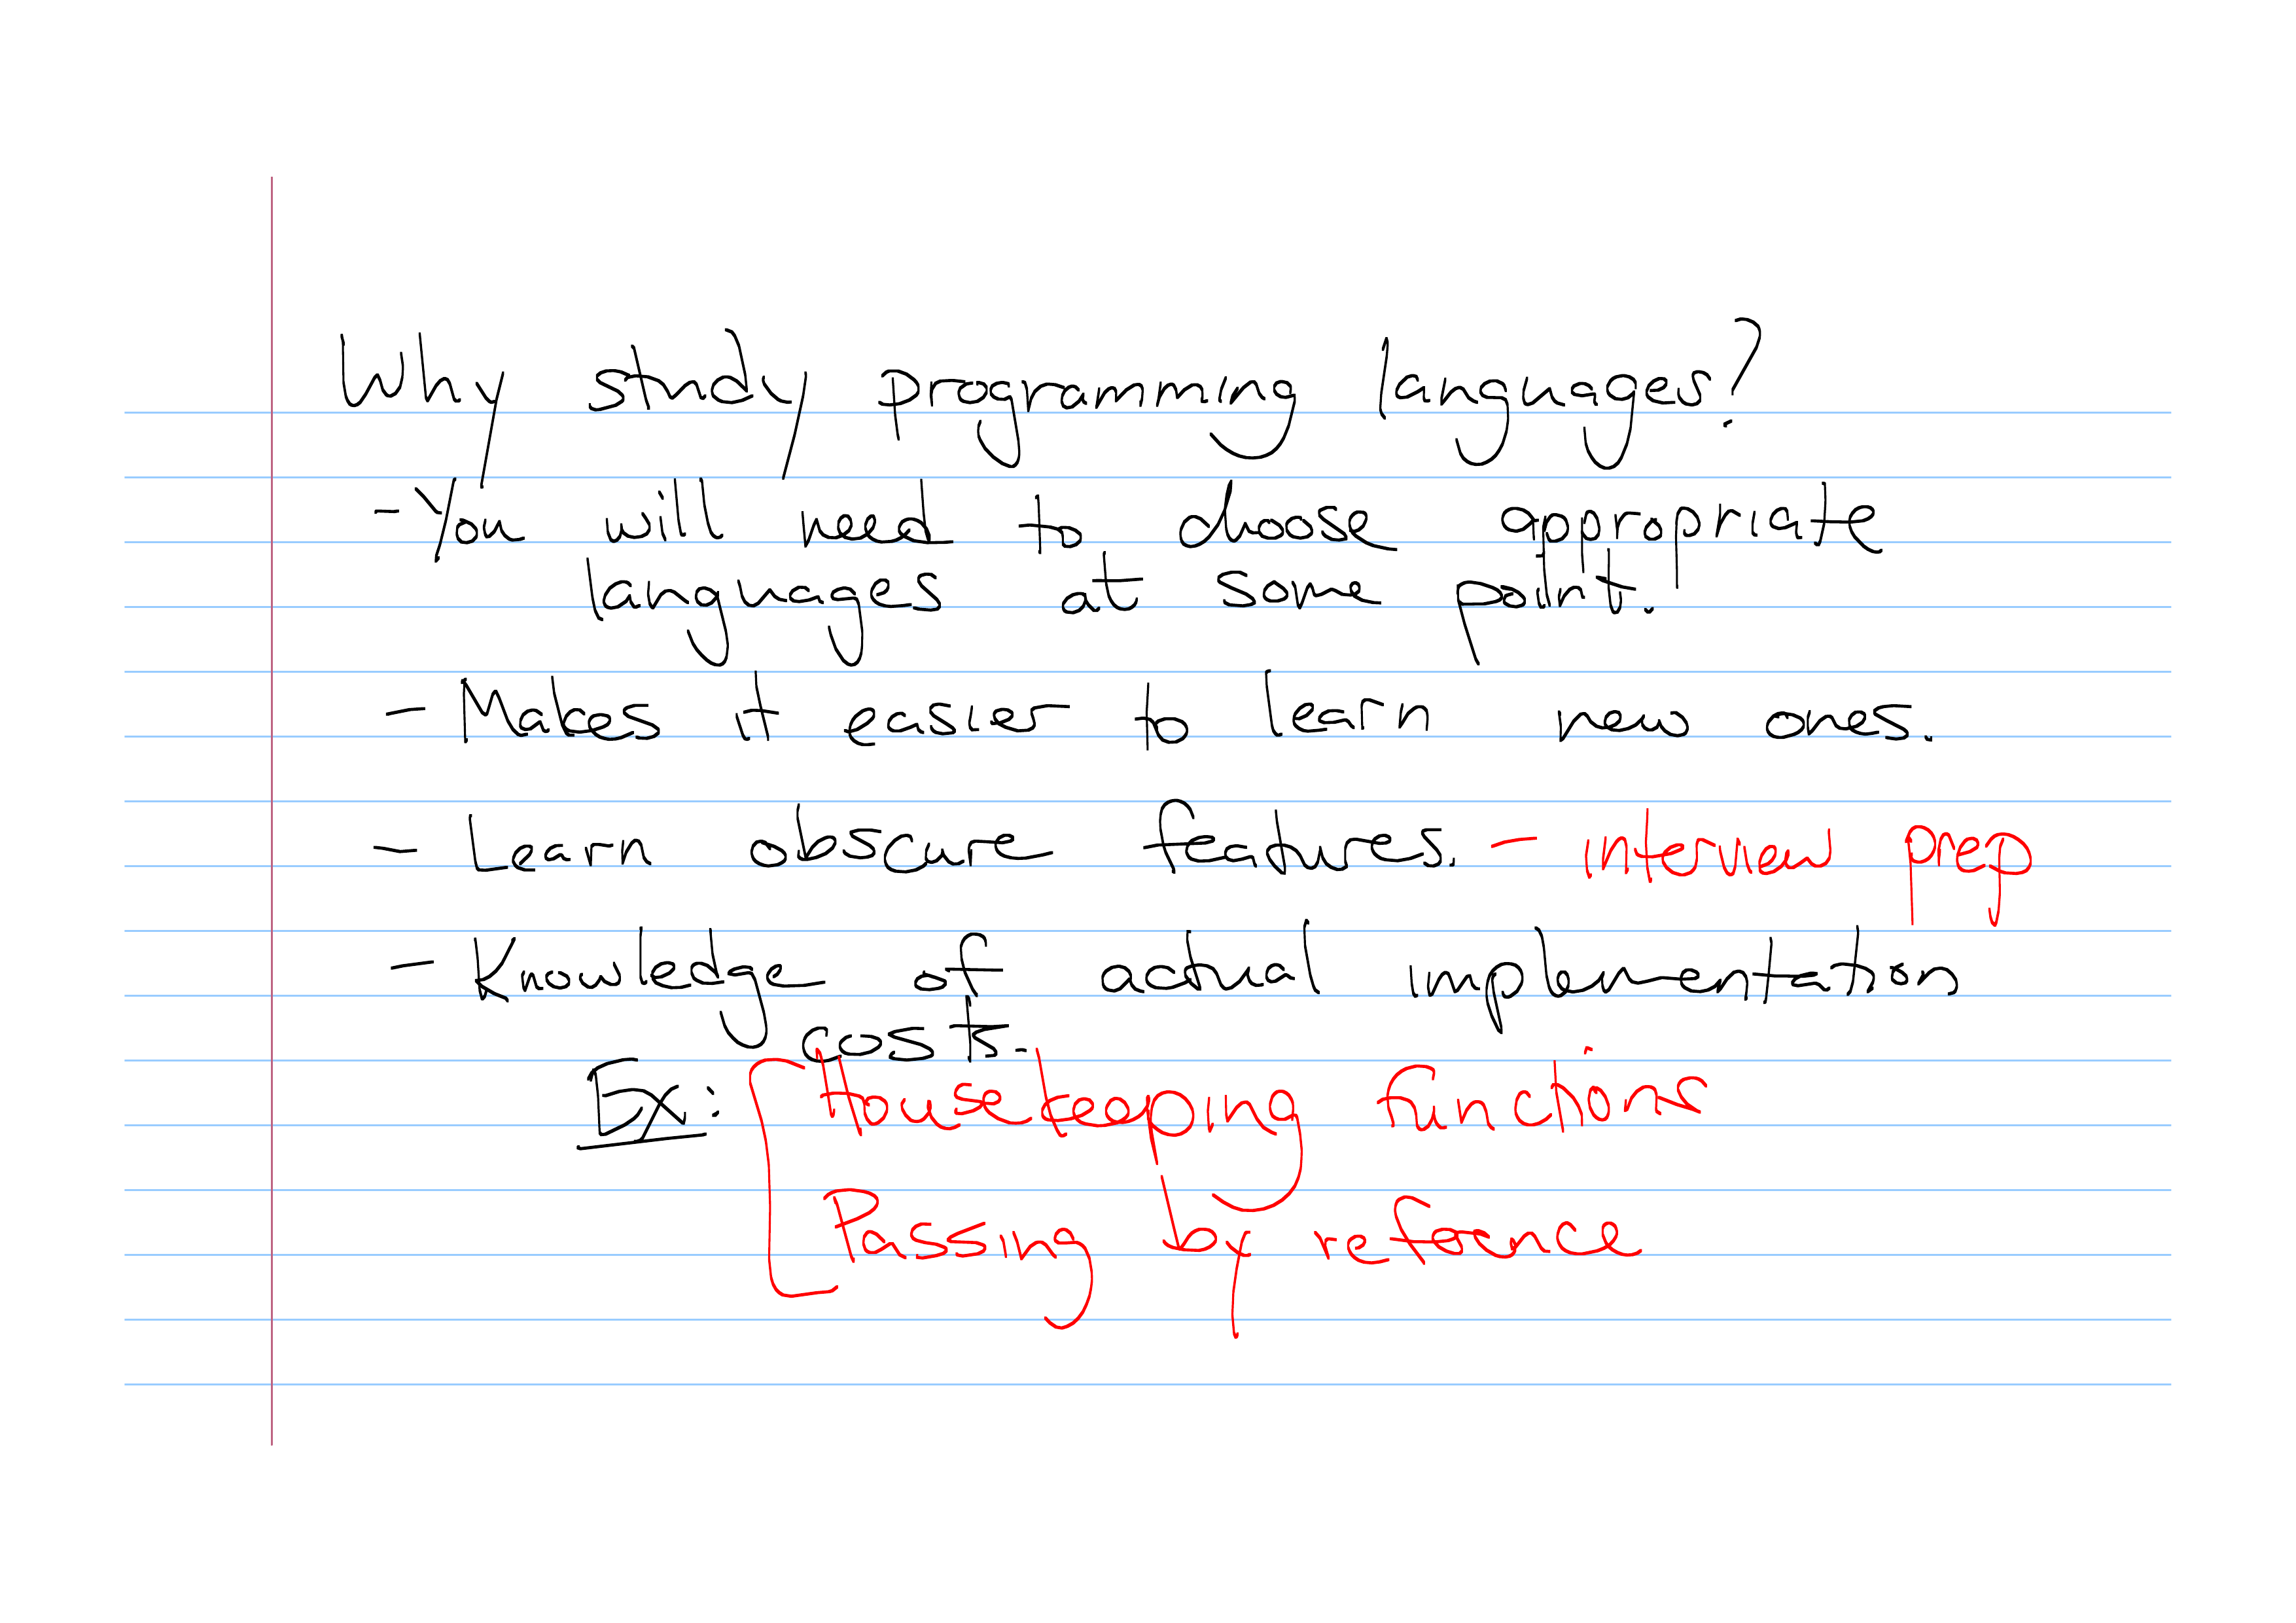 Why study programming languages?
-You will need to choose appropriate
languages at some point.
- Makes it easier to learn new ones.
- Learn obscure features. - interview prep
- Knowledge of actual implementation
costs.
Ex: Housekeeping functions
Passing by reference